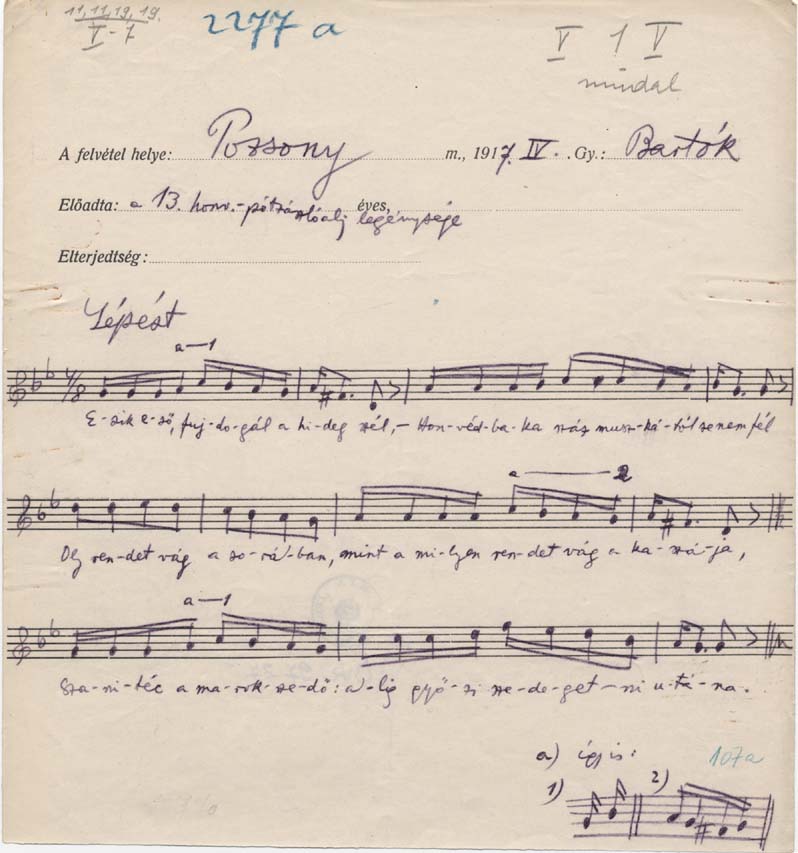 11, 11, 19, 19.
V - 7
2277 a
V 1 V
A felvétel helye: Pozsony m., 1917. IV. Gy.: Bartók
Előadta: a 13. honv.-pótzászlóalj legénysége éves,
Elterjedtség:
Lépést
a—1
4/8
E-sik e-ső, fuj-do-gál a hi-deg szél, – Hon-véd-ba-ka száz musz-ká-tól se nem fél
a — 2
Oly ren-det vág a so-rá-ban, mint a mi-lyen ren-det vág a ka-szá-ja,
a—1
Sza-ni-téc a ma-rok-sze-dő: a-lig győ-zi sze-de-get-ni u-tá-na.
a) így is: 107a
1) 2)